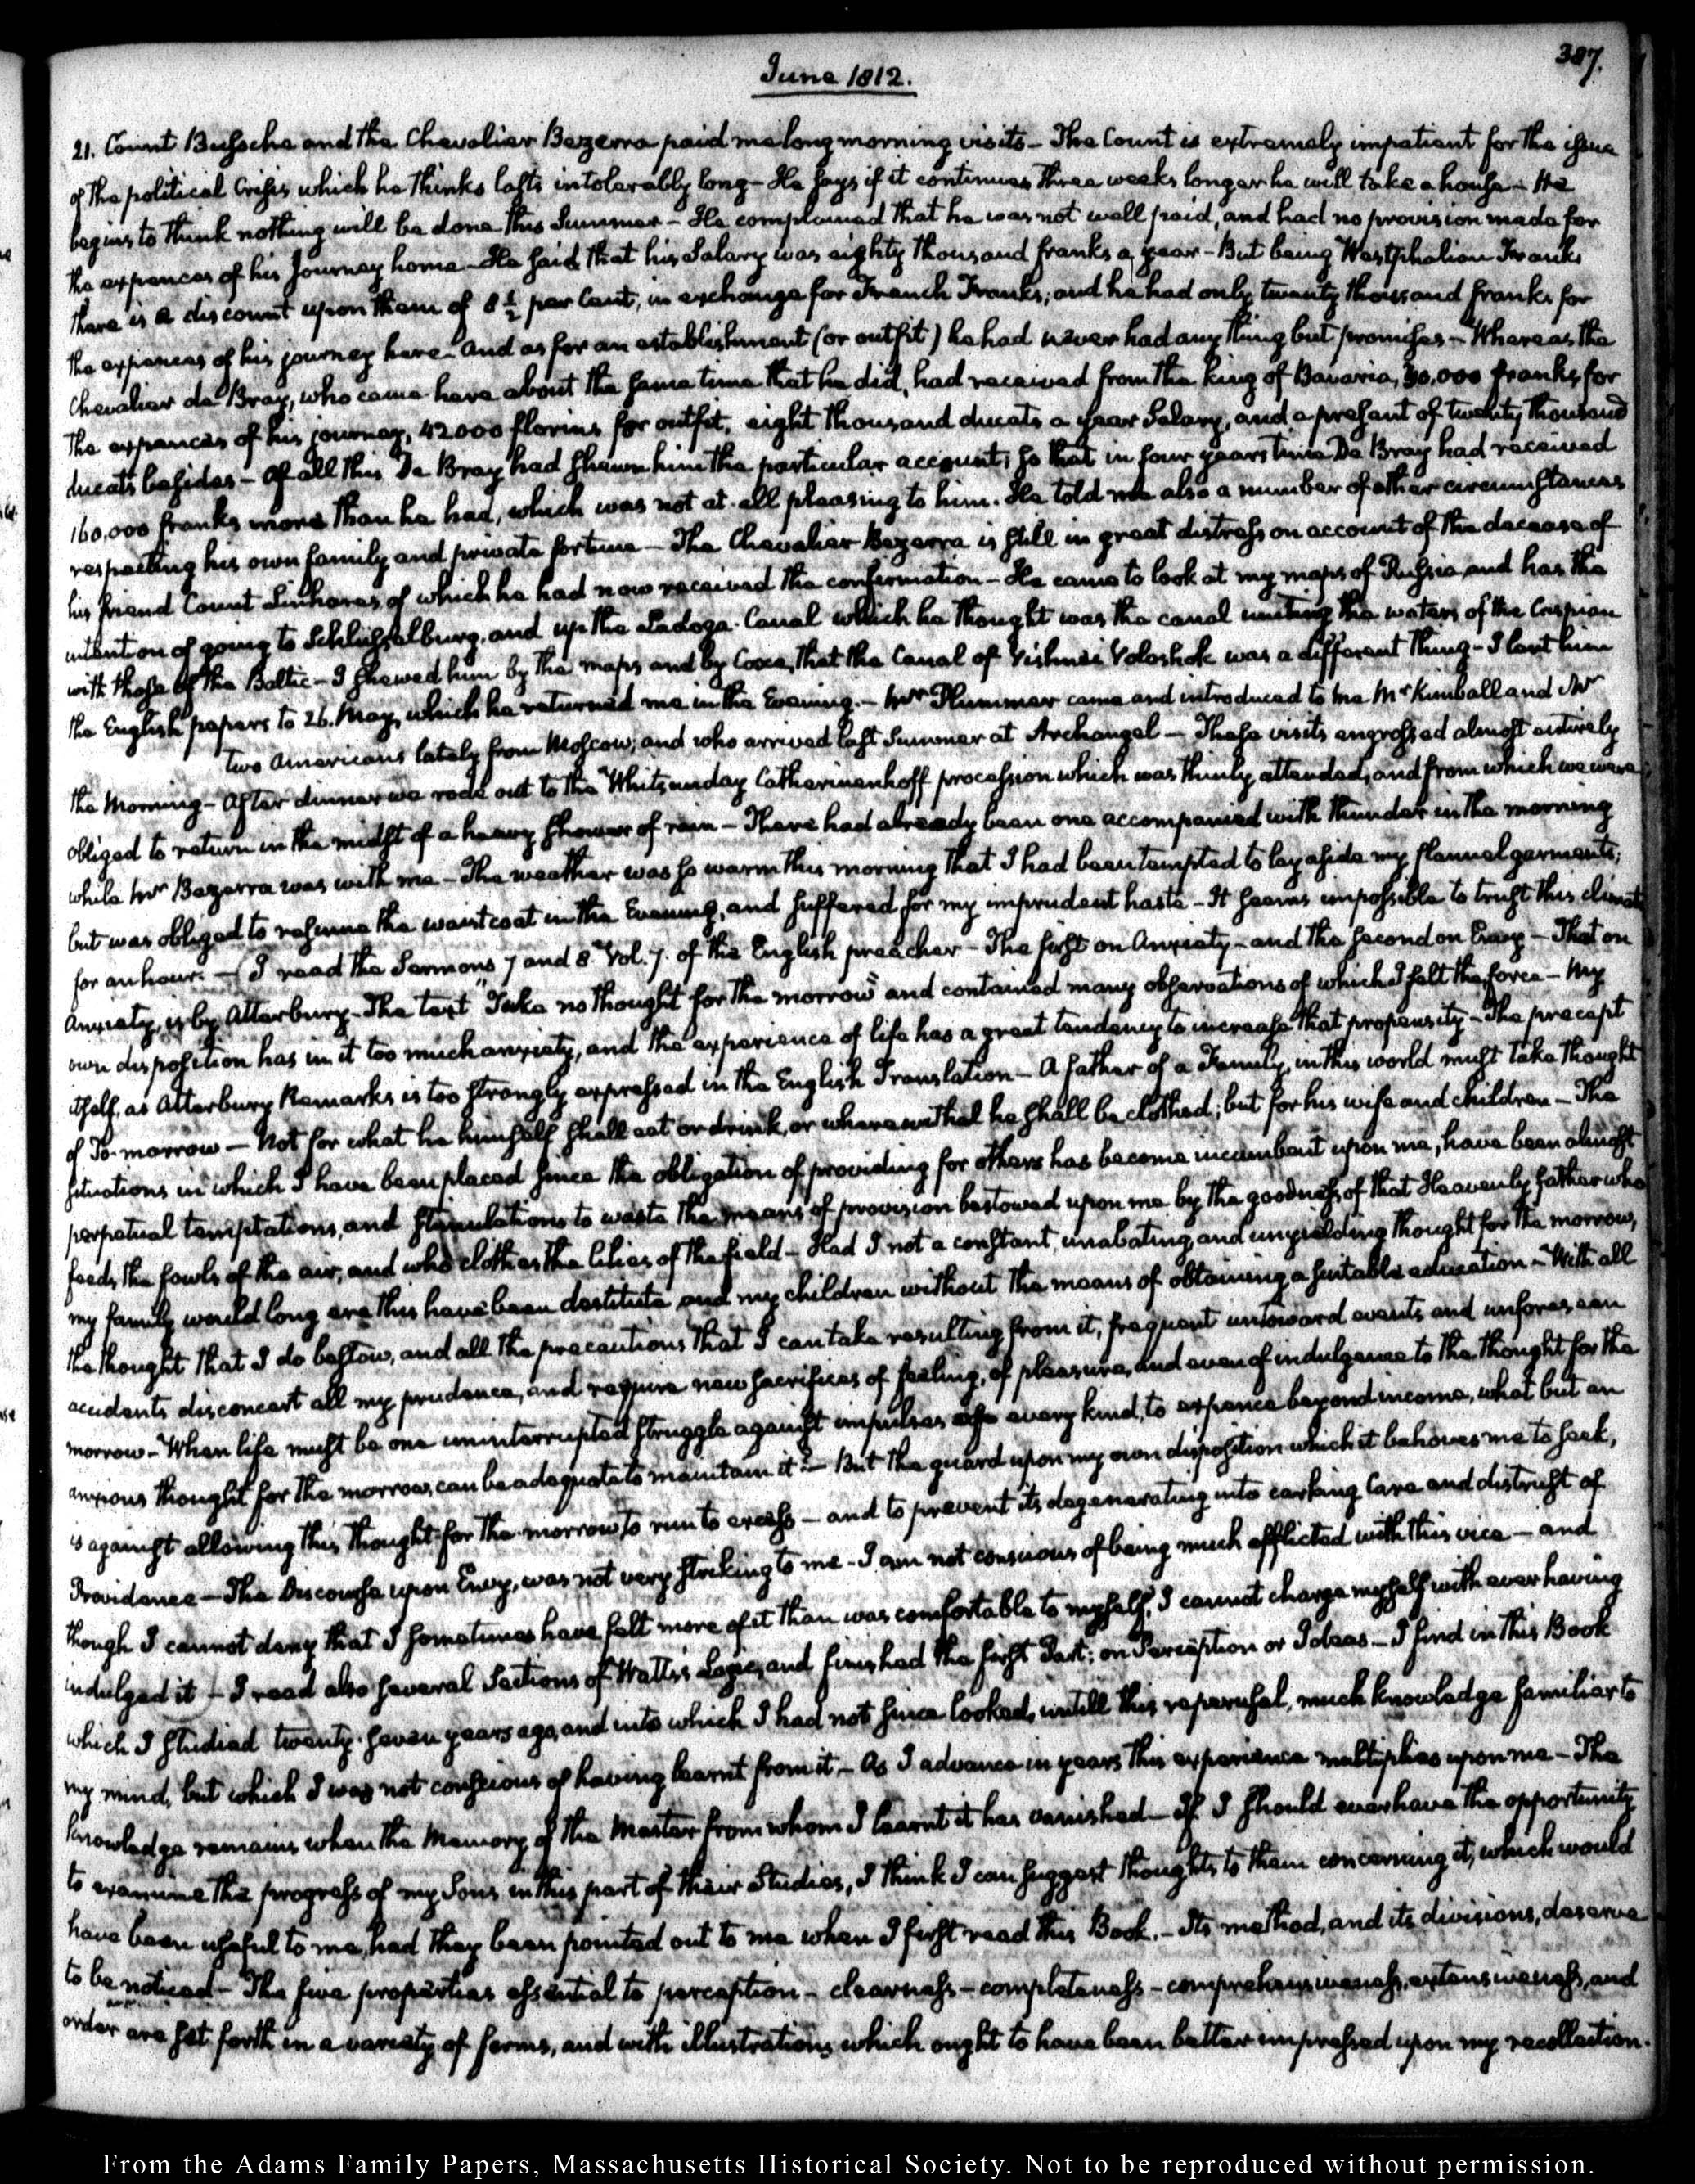 387.
June 1812.
21. Count Bussche and the Chevalier Bezerra paid me long morning visits – The Count is extremely impatient for the issue
of the political Crisis which he thinks lasts intolerably long – He says if it continues three weeks longer he will take a house – He
begins to think nothing will be done this Summer – He complained that he was not well paid, and had no provision made for
the expences of his Journey home – He said that his Salary was eighty thousand franks a year – But being Westphalian Franks
there is a discount upon them of 8 1/2 per Cent, in exchange for French Franks; and he had only twenty thousand franks for
the expences of his journey here – And as for an establishment (or outfit) he had never had any thing but promises – Whereas the
Chevalier de Bray, who came here about the same time that he did, had received from the king of Bavaria, 30,000 franks for
the expences of his journey, 42000 florins for outfit, eight thousand ducats a year Salary, and a present of twenty thousand
ducats besides – Of all this De Bray had shewn him the particular account; so that in four years time De Bray had received
160,000 franks more than he had, which was not at all pleasing to him. He told me also a number of other circumstances
respecting his own family and private fortune – The Chevalier Bezerra is still in great distress on account of the decease of
his friend Count Linhares of which he had now received the confirmation – He came to look at my maps of Russia and has the
intention of going to Schlüsselburg, and up the Ladoga Canal which he thought was the canal uniting the waters of the Caspian
with those of the Baltic – I shewed him by the maps and by Coxe, that the Canal of Vishnei Voloshok was a different thing – I lent him
the English papers to 26. May, which he returned me in the Evening. – Mr Plummer came and introduced to me Mr Kimball and Mr
two Americans lately from Moscow; and who arrived last Summer at Archangel – These visits engrossed almost entirely
the Morning – After dinner we rode out to the Whitsunday Catherinenhoff procession which was thinly attended, and from which we were
obliged to return in the midst of a heavy shower of rain – There had already been one accompanied with thunder in the morning
while Mr Bezerra was with me – The weather was so warm this morning that I had been tempted to lay aside my flannel garments;
but was obliged to resume the waistcoat in the Evening, and suffered for my imprudent haste – It seems impossible to trust this climate
for an hour. – I read the Sermons 7 and 8 Vol. 7. of the English preacher – The first on Anxiety – and the second on Envy – That on
Anxiety, is by Atterbury – The text "Take no thought for the morrow" and contained many observations of which I felt the force – My
own disposition has in it too much anxiety, and the experience of life has a great tendency to increase that propensity – The precept
itself, as Atterbury Remarks is too strongly expressed in the English Translation – A father of a Family, in this world must take thought
of To-morrow – Not for what he himself shall eat or drink, or wherewithal he shall be clothed; but for his wife and children – The
situations in which I have been placed since the obligation of providing for others has become incumbent upon me, have been almost
perpetual temptations, and stimulations to waste the means of provision bestowed upon me by the goodness of that Heavenly father who
feeds the fowls of the air, and who clothes the lilies of the field – Had I not a constant, unabating and unyielding thought for the morrow,
my family would long ere this have been destitute and my children without the means of obtaining a suitable education – With all
the thought that I do bestow, and all the precautions that I can take resulting from it, frequent untoward events and unforeseen
accidents disconcert all my prudence, and require new sacrifices of feeling, of pleasure, and even of indulgence to the thought for the
morrow – When life must be one uninterrupted struggle against impulses of every kind, to expence beyond income, what but an
anxious thought for the morrow, can be adequate to maintain it? – But the guard upon my own disposition which it behoves me to seek,
is against allowing this thought for the morrow to run to excess – and to prevent its degenerating into carking Care and distrust of
Providence – The Discourse upon Envy, was not very striking to me – I am not conscious of being much afflicted with this vice – and
though I cannot deny that I sometimes have felt more of it than was comfortable to myself, I cannot charge myself with ever having
indulged it – I read also several Sections of Watts's Logic, and finished the first Part; on Perception or Ideas – I find in this Book
which I studied twenty-seven years ago, and into which I had not since looked, untill this reperusal, much knowledge familiar to
my mind, but which I was not conscious of having learnt from it – As I advance in years this experience multiplies upon me – The
knowledge remains when the Memory of the Master from whom I learnt it has vanished – If I should ever have the opportunity
to examine the progress of my Sons in this part of their Studies, I think I can suggest thoughts to them concerning it, which would
have been useful to me, had they been pointed out to me when I first read this Book. – Its method, and its divisions, deserve
to be noticed – The five properties essential to perception – clearness – completeness – comprehensiveness, extensiveness, and
order are set forth in a variety of forms, and with illustrations which ought to have been better impressed upon my recollection.
From the Adams Family Papers, Massachusetts Historical Society. Not to be reproduced without permission.